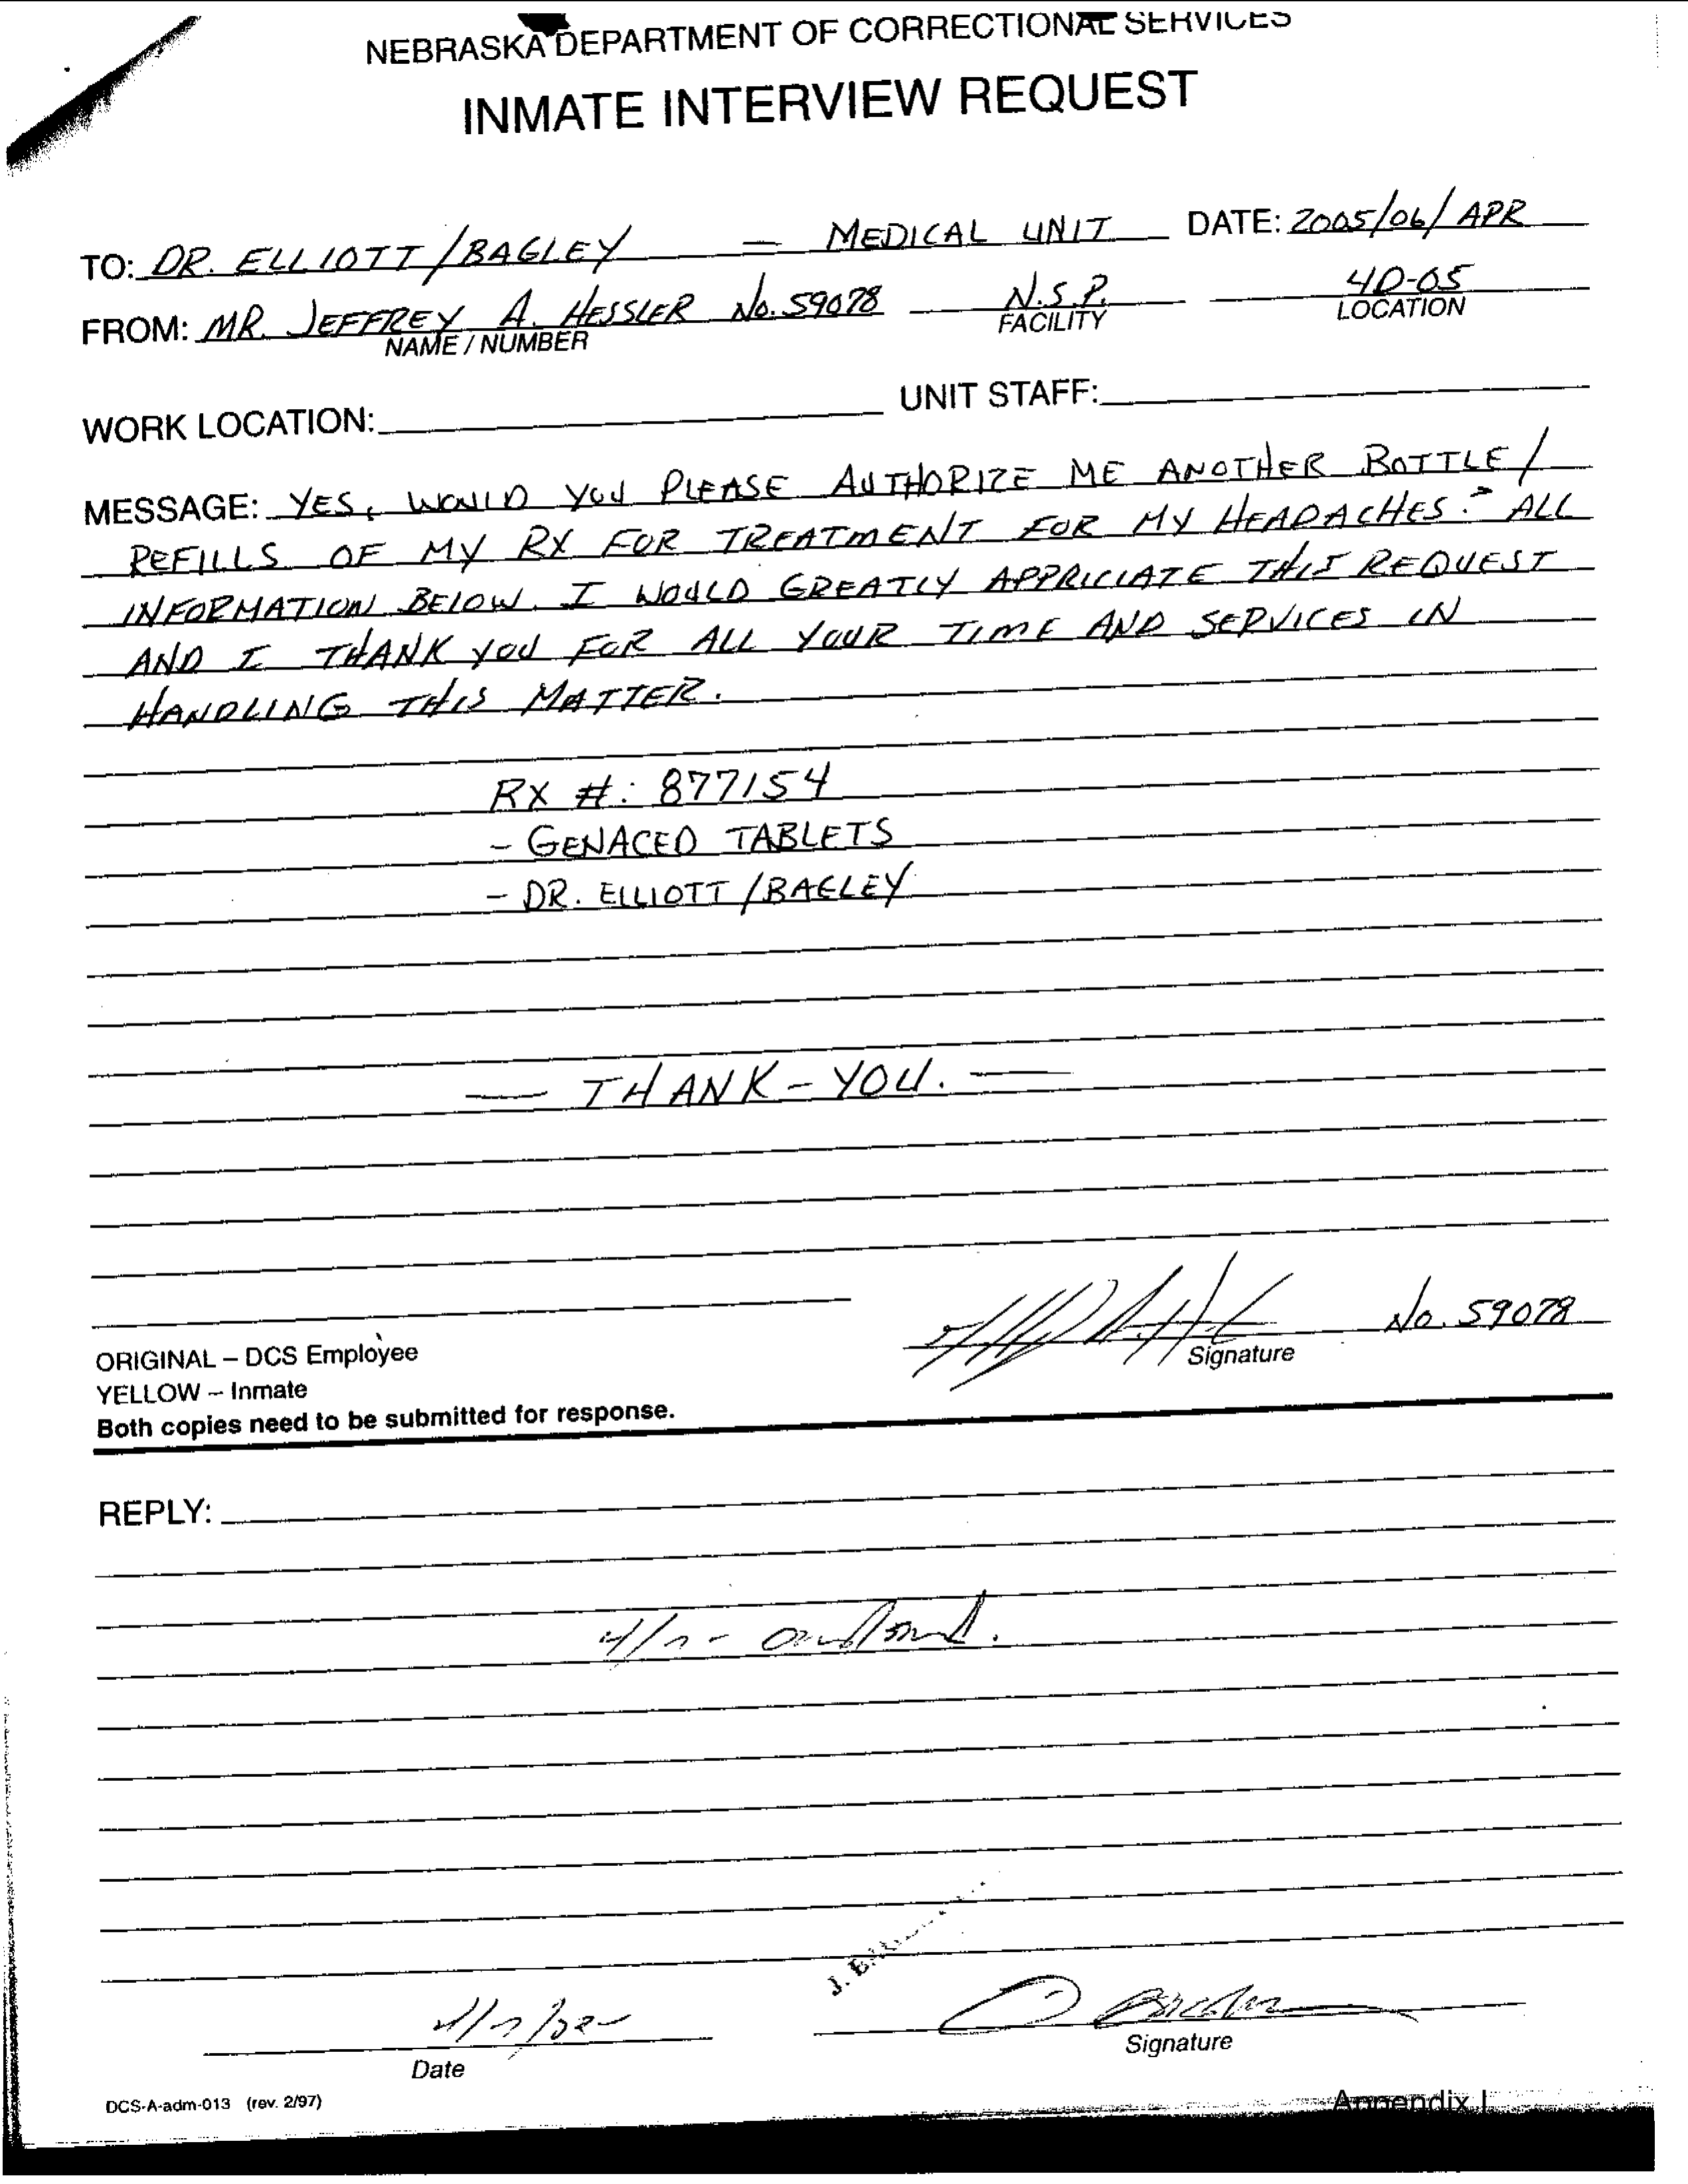 NEBRASKA DEPARTMENT OF CORRECTIONAL SERVICES
INMATE INTERVIEW REQUEST
TO: DR. ELLIOTT/BAGLEY — MEDICAL UNIT DATE: 2005/06/APR
FROM: MR. JEFFREY A. HESSLER No. 59078 N.S.P. 4D-05
NAME / NUMBER FACILITY LOCATION
WORK LOCATION: UNIT STAFF:
MESSAGE: YES, WOULD YOU PLEASE AUTHORIZE ME ANOTHER BOTTLE/
REFILLS OF MY RX FOR TREATMENT FOR MY HEADACHES? ALL
INFORMATION BELOW. I WOULD GREATLY APPRICIATE THIS REQUEST
AND I THANK YOU FOR ALL YOUR TIME AND SERVICES IN
HANDLING THIS MATTER.
RX #: 877154
- GENACED TABLETS
- DR. ELLIOTT/BAGLEY
— THANK-YOU. —
No. 59078
Signature
ORIGINAL – DCS Employee
YELLOW – Inmate
Both copies need to be submitted for response.
REPLY:
4/7 -
J.
4/7/05
Date Signature
DCS-A-adm-013 (rev. 2/97)
Appendix I